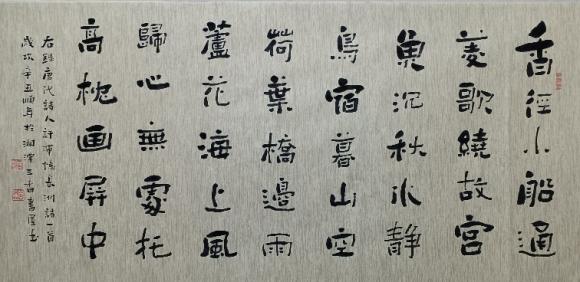 香徑小船通
菱歌繞故宮
魚沉秋水静
鳥宿暮山空
荷葉橋邊雨
蘆花海上風
歸心無處托
高枕画屏中
右録唐代詩人許渾憶長洲詩一首
歲次辛丑於湘潭書屋